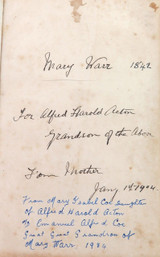 Mary Warr 1842
For Alfred Harold Acton
Grandson of the Above
From Mother
Jany 1st 1904.
From Mary Isabel Cox daughter
of Alfred Harold Acton
To Emanuel Alfred Cox
Great Great Grandson of
Mary Warr. 1984